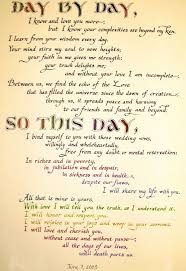 DAY BY DAY,
I know and love you more—
but I know your complexities are beyond my ken.
I learn from your wisdom every day.
Your mind stirs my soul to new heights;
your faith in me gives me strength;
your touch delights me,
and without your love I am incomplete—
Between us, we find the echo of the Love
that has filled the universe since the dawn of creation—
through us, it spreads peace and harmony
to our friends and family and beyond.
SO THIS DAY,
I bind myself to you with these wedding vows,
willingly and wholeheartedly,
free from any doubt or mental reservation:
In riches and in poverty,
in jubilation and in despair,
in sickness and in health,
despite our flaws,
I will share my life with you.
All that is mine is yours.
With love I will tell you the truth, as I understand it.
I will honor and respect you.
I will rejoice in your joys and weep in your sorrows.
I will love and cherish you,
without cease and without pause—
all the days of our lives,
until death parts us
June 7, 2003